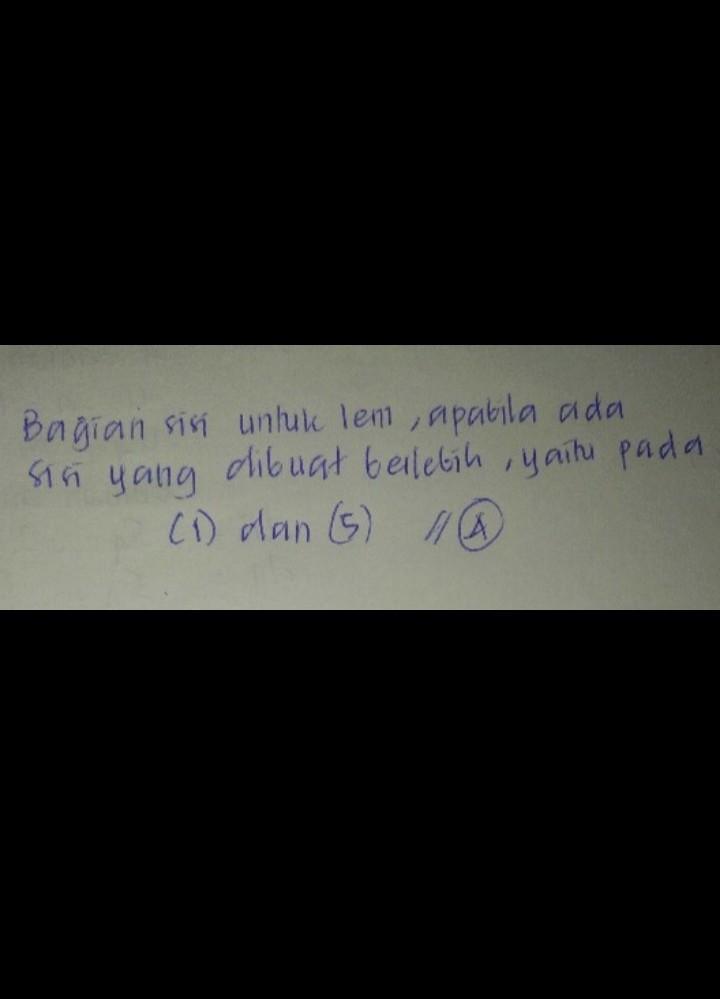 Bagian sisi untuk lem, apabila ada
sisi yang dibuat berlebih, yaitu pada
(1) dan (5) // A